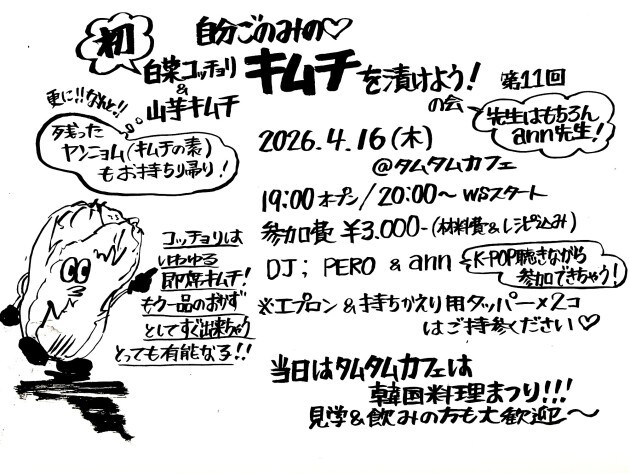 初
自分ごのみの♡
白菜コッチョリ
&
山芋キムチ
キムチを漬けよう!
の会
第11回
先生はもちろん
ann先生!
更に!!なんと!!
残った
ヤンニョム(キムチの素)
もお持ち帰り!
2026.4.16(木)
@タムタムカフェ
19:00オープン/20:00〜WSスタート
参加費 ¥3.000-(材料費&レシピ込み)
DJ; PERO & ann
K-POP聴きながら
参加できちゃう!
※エプロン&持ちかえり用タッパー×2コ
はご持参ください♡
コッチョリは
いわゆる
即席キムチ!
もう一品のおかず
としてすぐ出来ちゃう
とっても有能なる!!
当日はタムタムカフェは
韓国料理まつり!!!
見学&飲みの方も大歓迎〜